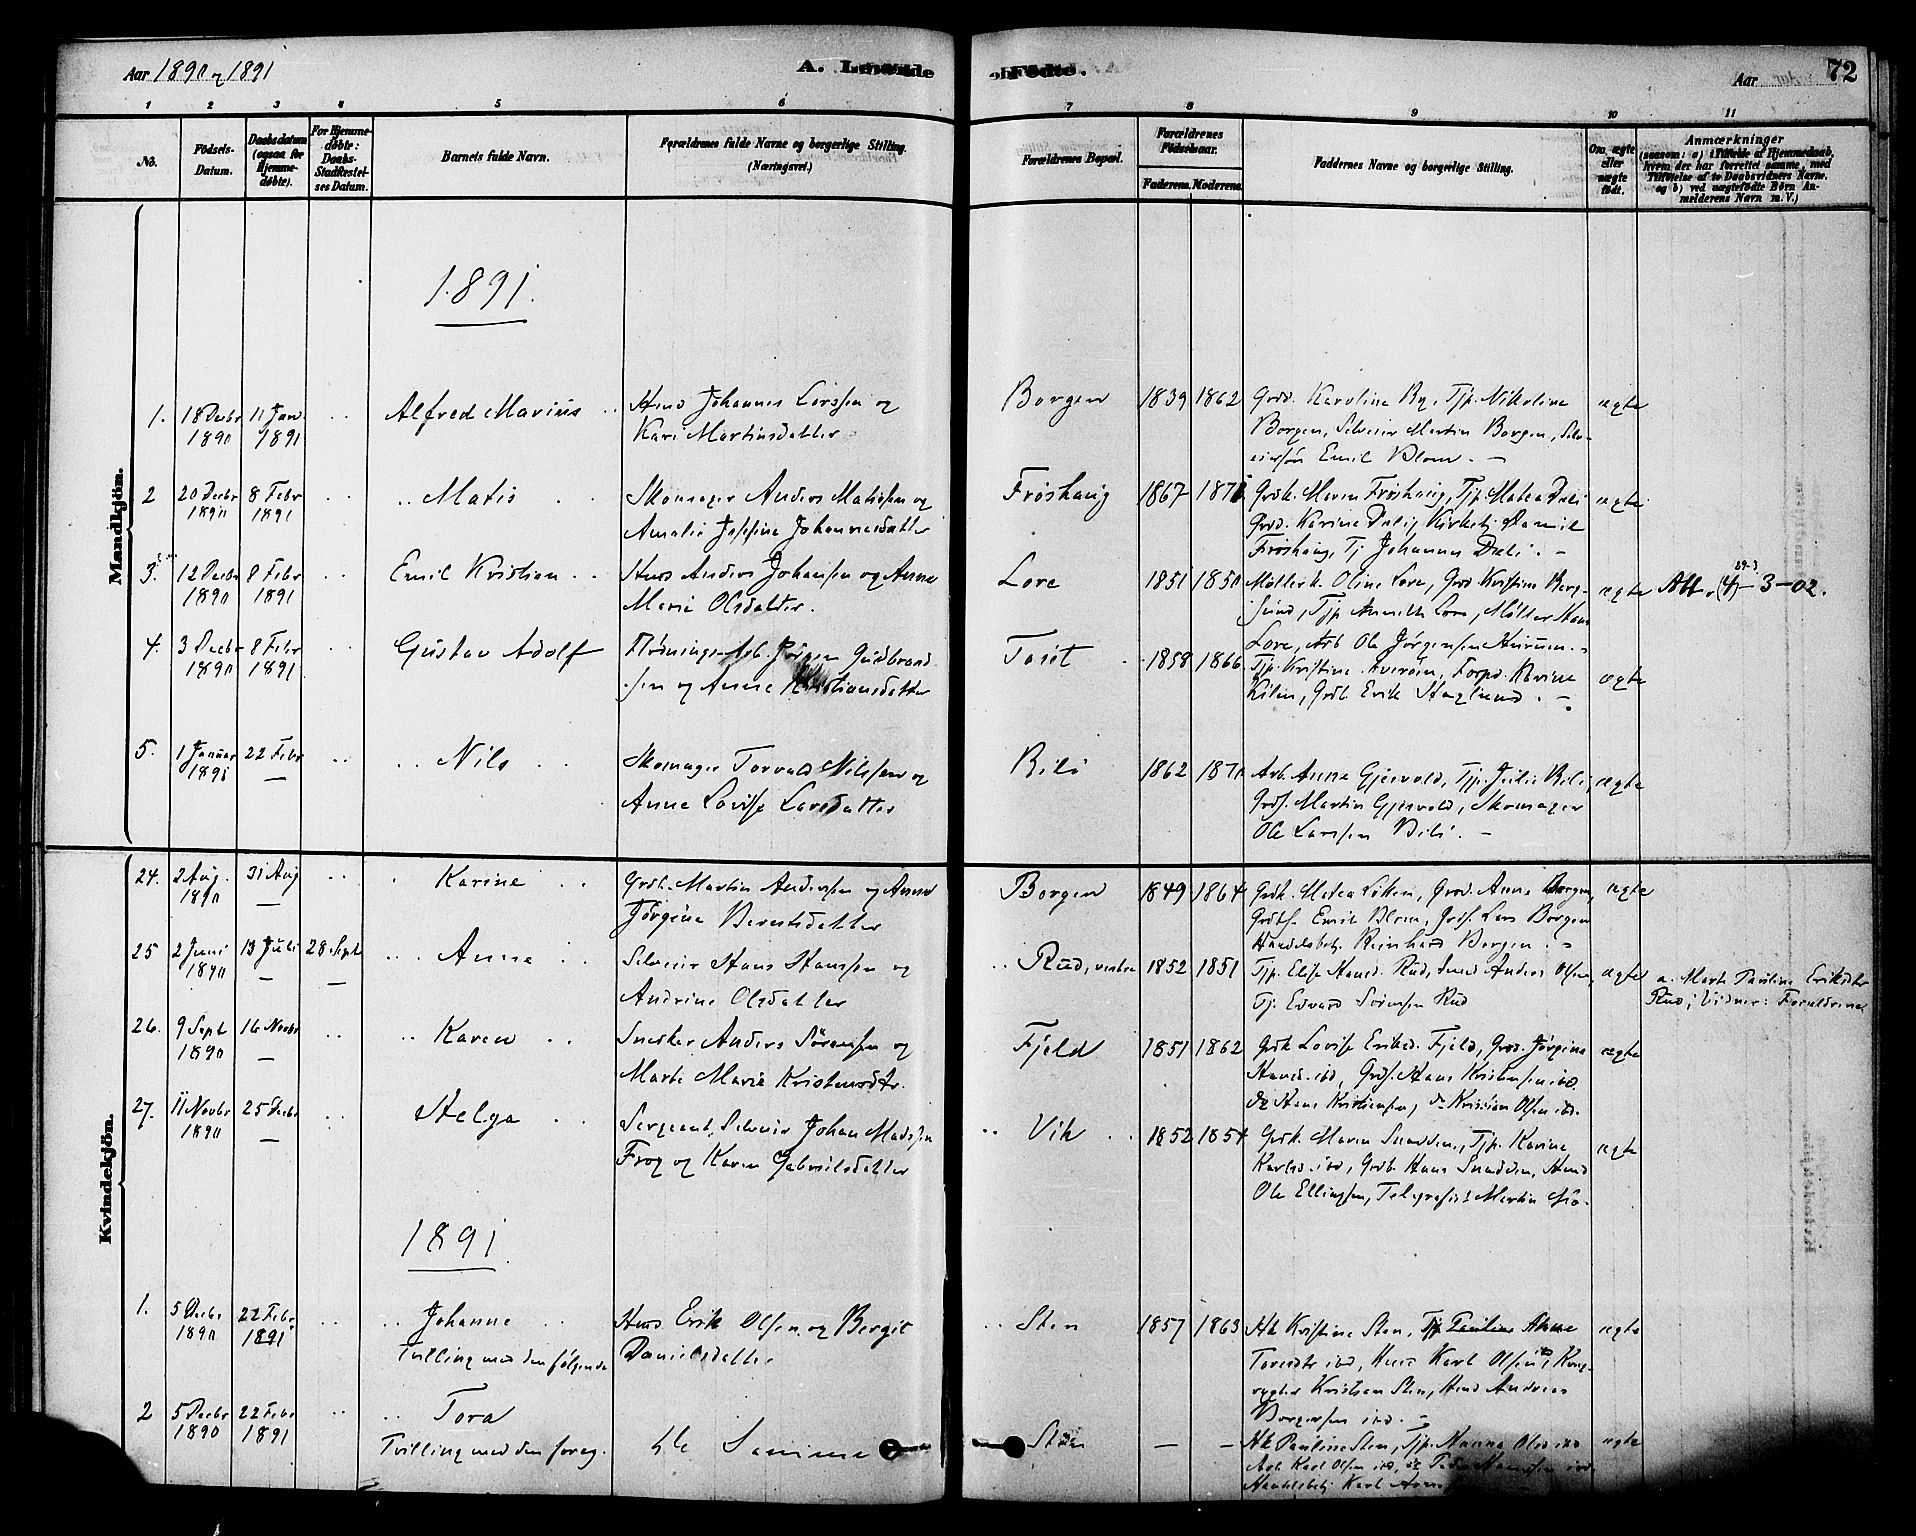 Aar 1890 og 1891
A. Levende
Fødte.
Aar
72
1 2 3 4 5 6 7 8 9 10 11
No.
Fødsels-Datum.
Daabsdatum (ogsaa for Hjemme-døbte).
For Hjemme-døbte: Daabs-Stadfæstel-ses Datum.
Barnets fulde Navn.
Forældrenes fulde Navne og borgerlige Stilling. (Næringsvei.)
Forældrenes Bopæl.
Forældrenes Fødselsaar.
Faderens. Moderens.
Faddernes Navne og borgerlige Stilling.
Om ægte eller uægte født.
Anmærkninger
(saasom: a) i Tilfælde af Hjemmedaab,
hvem der har forrettet samme, med
Tilføielse af to Daabsvidners Navne,
og b) ved uægtefødte Børn An-
melderens Navn m. V.)
Mandkjön.
1891.
1. 18 Decbr 1890 11 Jan. 1891 Alfred Marius
Husd Johannes Larssen og
Kari Martinsdatter
Borgen 1839 1862
Grdd. Karoline By, Tjp. Nikoline
Borgen, Selveier Martin Borgen, Selv-
eiersøn Emil Blom. –
ægte
2 20 Decbr 1890 8 Febr 1891 Matis
Skomager Anders Matissen og
Amalie Josefine Johannesdatter
Frøshaug 1867
Grdk. Maren Frøshaug, Tjp. Matea Dæli
Grdd. Karine Dæli, Kirkebtj. Daniel
Frøshaug, Tj. Johannes Dæli. –
ægte
3. 12 Decbr 1890 8 Febr 1891 Emil Kristian
Husd Anders Johansen og Anne
Marie Olsdatter.
Lore 1851 1850
Møllerk. Oline Lore, Grdd Kristine Berg-
sund, Tjp. Lore, Møller Hans
Lore, Arb Ole Jørgensen
ægte
Att. 3–02.
4. 3 Decbr 1890 8 Febr 1891 Gustav Adolf
Flødnings-Arb. Jørgen Gudbrand-
sen og Anne Kristiansdatter
1858 1866
Tjp. Kristine
Kilen, Grdb. Erik Haglund. –
ægte
5. 1 Januar 1891 22 Febr – Nils
Skomager Torvald Nilssen og
Anne Lovise Larsdatter
Bili 1862 1870
Arb. Anne Gjesvold, Tjp. Julie Bili,
Grds. Martin Gjesvold, Skomager
Ole Larssen Bili. –
ægte
Kvindekjön.
24. 2 Aug. 1890 31 Aug – Karine
Grdb. Martin Anderssen og Anne
Jørgine Berntsdatter
Borgen 1849 1864
Grdk. Matea Løken, Grdd. Anne Borgen,
Grdbs. Emil Blom, Grds. Lars Borgen
Handelsbetj. Reinhard Borgen. –
ægte
25 2 Juni 1890 13 Juli – 28 Sept – Anne
Selveier Hans Hanssen og
Andrine Olsdatter
Rud, vestre 1852 1851
Tjp. Elise Hansd. Rud, Smed Anders Olsen,
Tj. Edvard Sørensen Rud
ægte
a. Marte Pauline Eriksdtr
Rud; Vidner: Forældrene
26. 9 Sept 1890 16 Novbr – Karen
Snedker Anders Sørenssen og
Marte Marie Kristensdtr.
Fjeld 1851 1862
Grdk Lovise Eriksd. Fjeld, Grdd. Jørgine
Hansd. ibd, Grds. Hans Kristensen ibd.
do Hans Kristiansen, do Kristian Olsen ibd.
ægte
27. 11 Novbr 1890 25 Decbr – Helga
Sergeant, Selveier Johan Madssen
Frog og Karen Gabrielsdatter
Vik 1852 1854
Grdk. Maren Snadden, Tjp. Karine
Karlsd. ibd, Grdb. Hans Snadden, Husd
Ole Ellingsen, Telegrafist Martin
ægte
1891.
1. 5 Decbr 1890 22 Febr 1891 Johanne
Tvilling med den følgende
Husd Erik Olsen og Bergit
Danielsdatter
Sten 1857 1863
Hk Kristine Sten, Tjp Pauline Anne
Toresdtr ibd, Husd Karl Olsen ibd,
Kristian Sten, Husd Andreas
Borgersen ibd. –
ægte
2 5 Decbr 1890 22 Febr 1891 Tora
Tvilling med den foreg.
de Samme
Sten – –
Hk Pauline Sten, Tjp. Hanna Olsd ibd
Arb Karl Olsen ibd, do Peder Hanssen ibd
Handelsbetj Karl
ægte